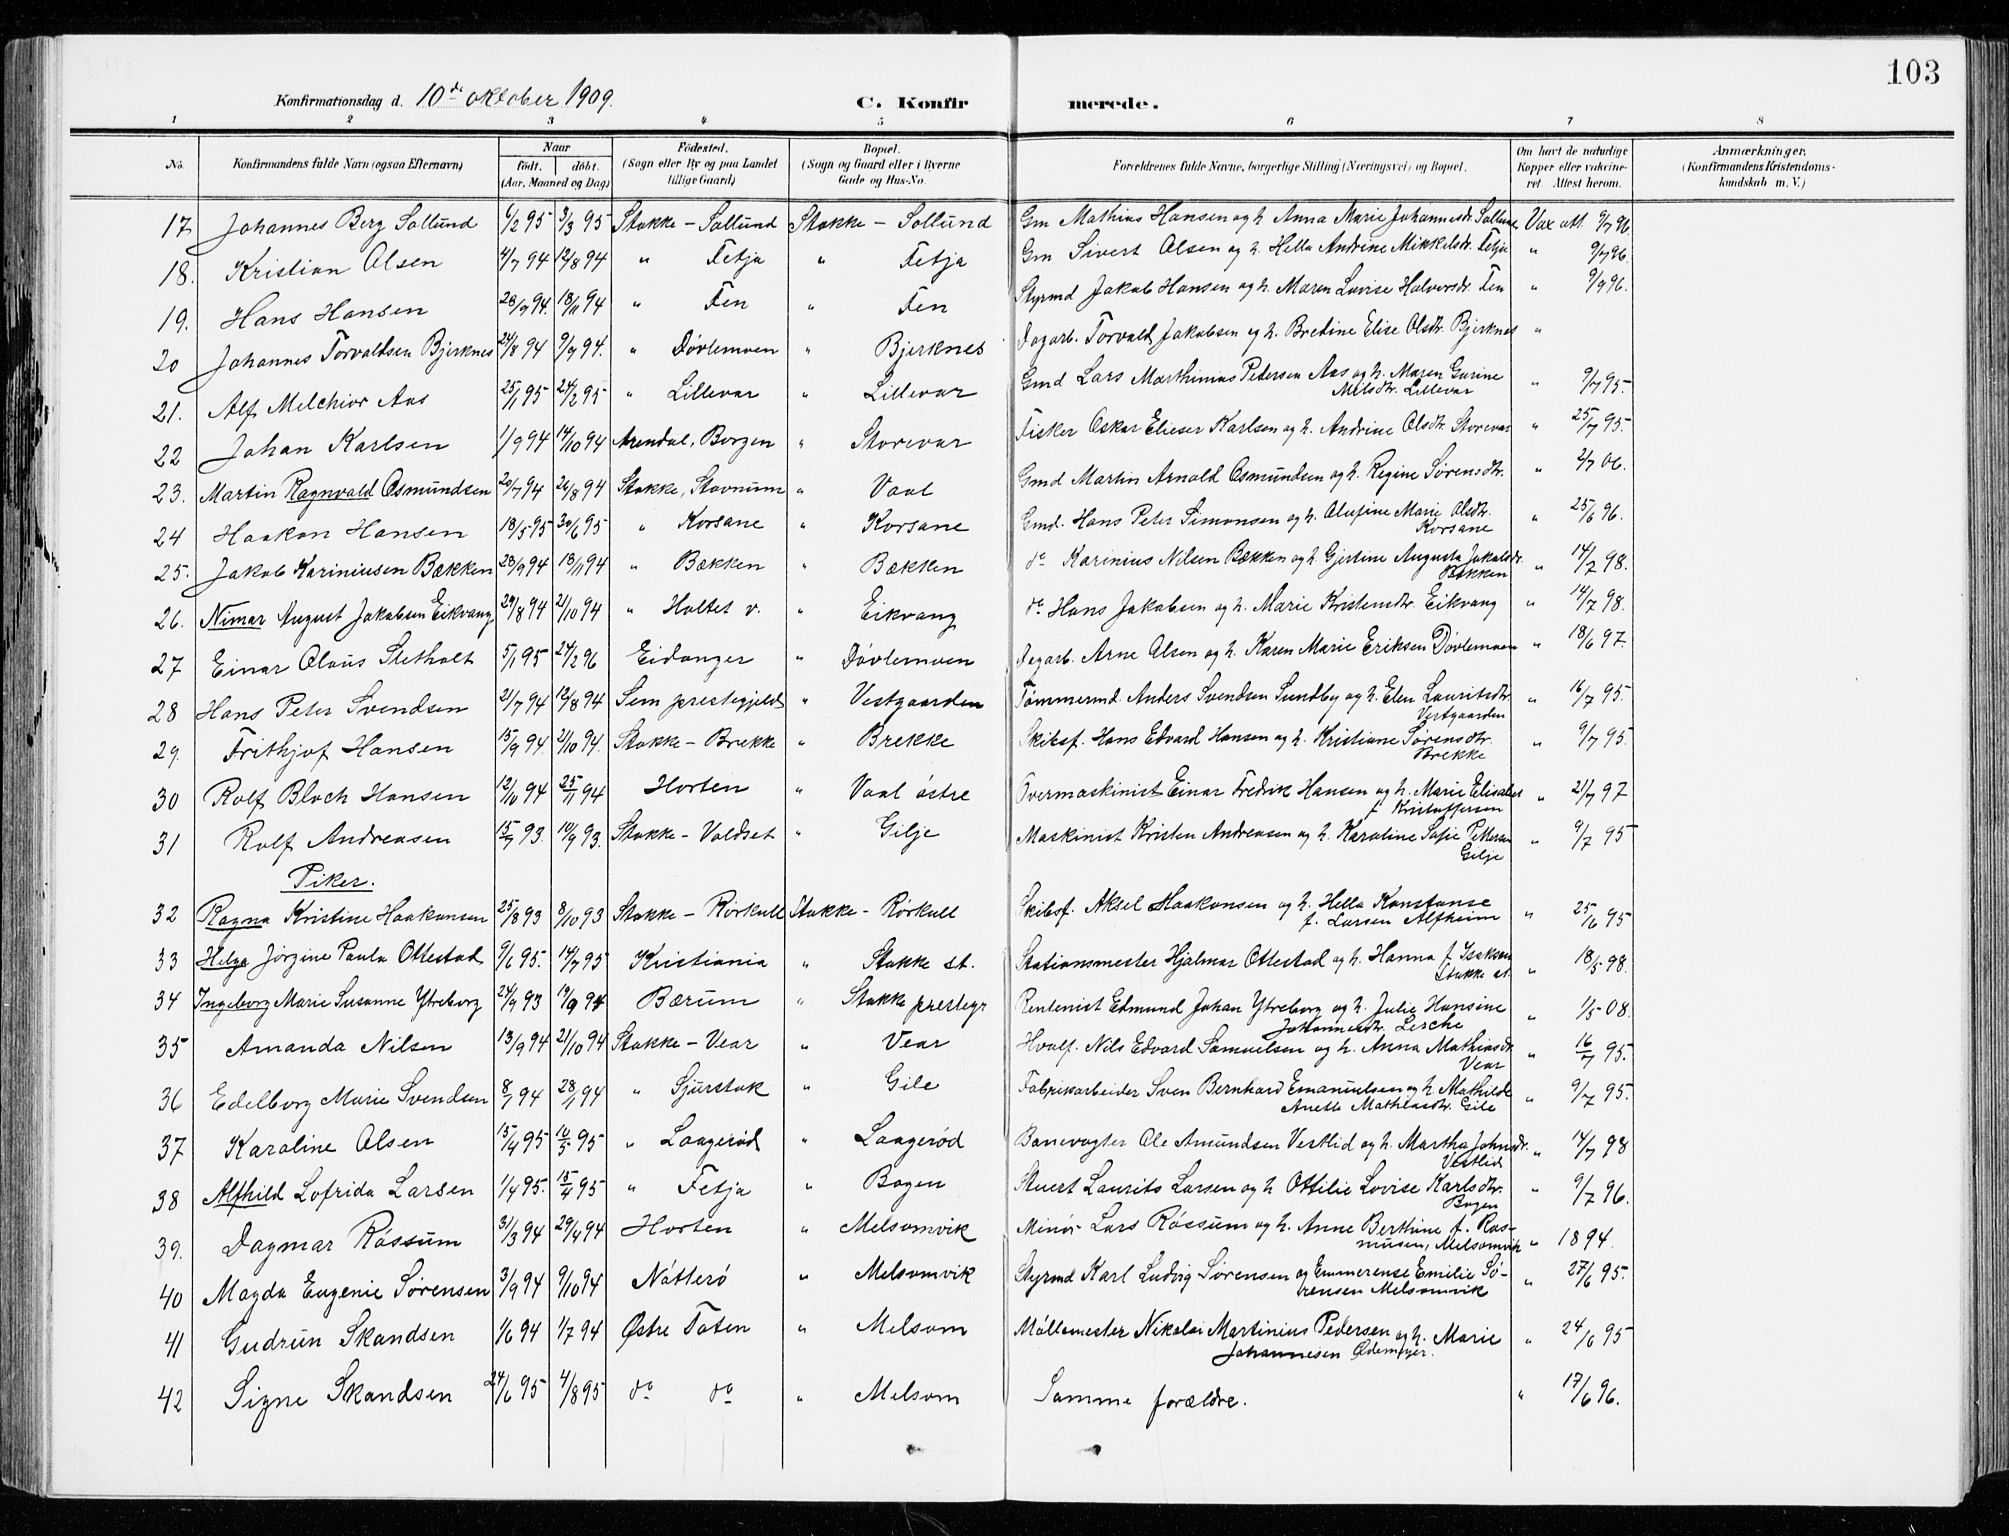 103
Konfirmationsdag d. 10de oktober 1909.
C. Konfirmerede.
1 2 3 4 5 6 7 8
No. Konfirmandens fulde Navn (ogsaa Efternavn) Naar født. døbt. (Aar, Maaned og Dag) Fødested. (Sogn eller By og paa Landet tillige Gaard) Bopæl. (Sogn og Gaard eller i Byerne Gade og Hus-No. Forældrenes fulde Navne, borgerlige Stilling (Næringsvei) og Bopæl. Om havt de naturlige Kopper eller vakcineret Attest herom. Anmærkninger. (Konfirmandens Kristendomskundskab m. V.)
17 Johannes Berg Sollund 6/2 95 3/3 95 Stokke - Sollund Stokke - Sollund Gm Mathias Hansen og h. Anna Marie Johannesdr. Sollund Vax att. 9/7 96.
18. Kristian Olsen 4/7 94 12/8 94 " Fetja " Fetja Gm Sivert Olsen og h. Hella Andrine Mikkelsdr. Fetja " 9/7 96.
19. Hans Hansen 28/9 94. 18/11 94 " Fen " Fen Styrmd Jakob Hansen og h. Maren Lovise Halvorsdr. Fen " 9/9 96.
20 Johannes Torvaldsen Bjerknes 24/8 94 9/9 94. " Døvlemoen " Bjerknes Dagarb. Torvald Jakobsen og h. Bredine Elise Olsdtr. Bjerknes "
21. Alf Melchior Aas 25/1 95 24/2 95 " Lillevar " Lillevar Gmd Lars Marthinius Pedersen Aas og h. Maren Gurine Nilsdtr. Lillevar " 9/7 95.
22 Johan Karlsen 1/9 94 14/10 94 Arendal, Borgen " Storevar Fisker Oskar Elieser Karlsen og h. Andrine Olsdtr. Storevar " 25/7 95.
23. Martin Ragnvald Osmundsen 20/7 94 26/8 94 Stokke, Stavnum " Vaal Gmd Martin Arnold Osmundsen og h. Regine Sørensdtr. " 2/7 06.
24 Haakon Hansen 18/5 95 30/6 95 " Korsane " Korsane Gmd. Hans Peter Simonsen og h. Olufine Marie Olsdtr. Korsane " 25/6 96.
25. Jakob Kariniusen Bækken 28/9 94 18/11 94 " Bækken " Bækken do Karinius Nilsen Bækken og h. Gjertine Augusta Jakobsdr. Bækken " 14/7 98.
26. Nimar August Jakobsen Eikvang 29/8 94 21/10 94 " Holtet v. " Eikvang do Hans Jakobsen og h. Marie Kristensdtr. Eikvang " 14/7 98.
27 Einar Olaus Stetholt 5/1 95 24/2 96 Eidanger " Døvlemoen Dagarb. Arne Olsen og h. Karen Marie Eriksen Døvlemoen " 18/6 97.
28 Hans Peter Svendsen 21/7 94 12/8 94 Sem prestegjeld " Vestgaarden Tømmermd. Anders Svendsen Sundby og h. Elen Lauritsdtr. Vestgaarden " 16/7 95.
29. Frithjof Hansen 15/9 94. 21/10 94. Stokke - Brekke " Brekke Skibsf. Hans Edvard Hansen og h. Kristiane Sørensdtr. Brekke " 9/7 95.
30 Rolf Bloch Hansen 12/10 94 25/11 94 Horten " Vaal østre Overmaskinist Einar Fredrik Hansen og h. Marie Elisabet f. Kristoffersen " 21/7 97
31 Rolf Andreasen 15/7 93. 10/9 93. Stokke - Valdset " Gilje Maskinist Kristen Andreasen og h. Karoline Sofie Pettersen Gilje " 9/7 95
Piker.
32 Ragna Kristine Haakonsen 25/8 93 8/10 93 Stokke - Rørkull Stokke - Rørkull Skibsf. Aksel Haakonsen og h. Hella Konstanse f. Larsen Alfheim " 25/6 95
33 Helga Jørgine Paula Ottestad 9/6 95. 14/7 95 Kristiania " Stokke st. Stationsmester Hjalmar Ottestad og h. Hanna f. Isaksen Stokke st. " 18/5 98.
34 Ingeborg Marie Susanne Ytreborg 24/9 93 19/9 94 Bærum " Stokke prestegr Rentenist Edmund Johan Ytreborg og h. Julie Hansine Johannesdtr. Lerche " 1/5 08.
35 Amanda Nilsen 13/9 94 21/10 94 Stokke - Vear " Vear Hvalf. Nils Edvard Samuelsen og h. Anna Mathiasdtr Vear " 16/7 95.
36 Edelborg Marie Svendsen 8/1 94 28/1 94 " Sjurstok " Gile Fabrikarbeider Sven Bernhard Emanuelsen og h Mathilde Anette Mathiasdtr. Gile " 9/7 95.
37 Karoline Olsen 15/4 95 16/5 95 " Laagerød " Laagerød Banevogter Ole Amundsen Vestlid og h. Martha Johnsdtr. Vestlid " 14/7 98
38 Alfhild Lofrida Larsen 1/4 95. 15/4 95 " Fetja " Bogen Stuert Laurits Larsen og h Ottilie Lovise Karlsdtr. Bogen " 9/7 96.
39. Dagmar Røssum 31/3 94 29/4 94 Horten " Melsomvik Minør Lars Røssum og h. Anne Berthine f. Rasmusen, Melsomvik " 1894.
40 Magda Eugenie Sørensen 3/9 94 9/10 94 Nøtterø " Melsomvik Styrmd Karl Ludvig Sørensen og Emmerense Emilie Sørensen Melsomvik " 27/6 95.
41 Gudrun Skandsen 1/6 94 1/7 94 Østre Toten " Melsom Møllemester Nikolai Martinius Pedersen og h. Marie Johannesen Ødemyer. " 24/6 95
42 Signe Skandsen 24/6 95 4/8 95 do do " Melsom Samme forældre. " 17/6 96.